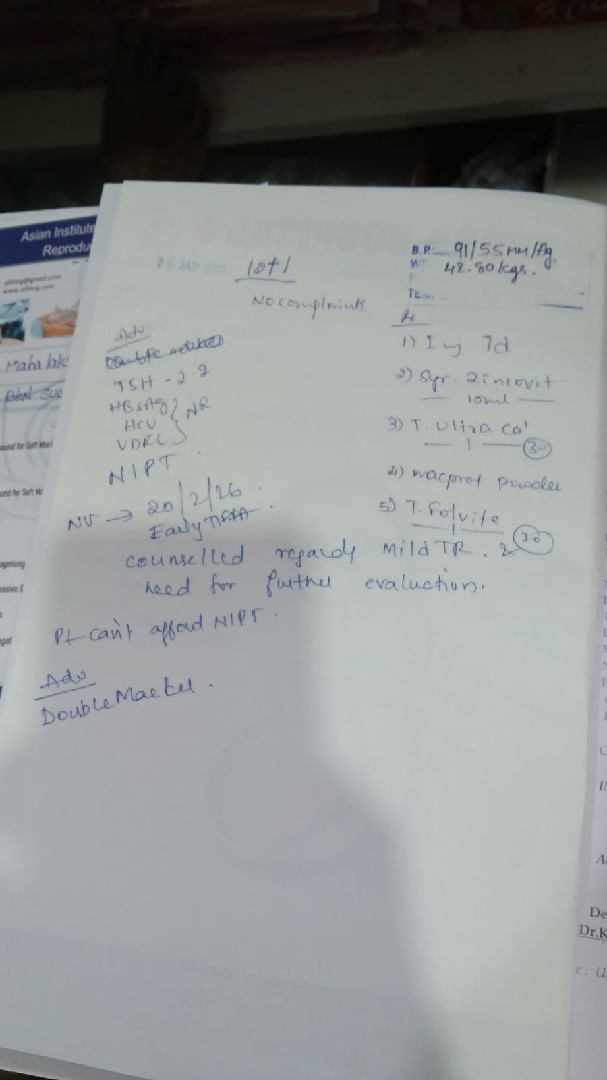 Asian Institute
Reprodu
Maha lak
B.P:- 91/55 mm/Hg
WT 42.80 kgs.
No complaints
Adv:
Double marker
TSH - 2.2
HBsAg
HCV } NR
VDRL
NIPT
NV → 20/2/26.
Early TIFFA
Rx
1) Inj Td
2) Syr. Zincovit
10ml
3) T. Ultra Cal
1 30
4) macprot powder
5) T. Folvite
1 30
counselled regards mild TR. &
need for further evaluation.
Pt can't afford NIPT.
Adv
Double Marker.
De
Dr.K